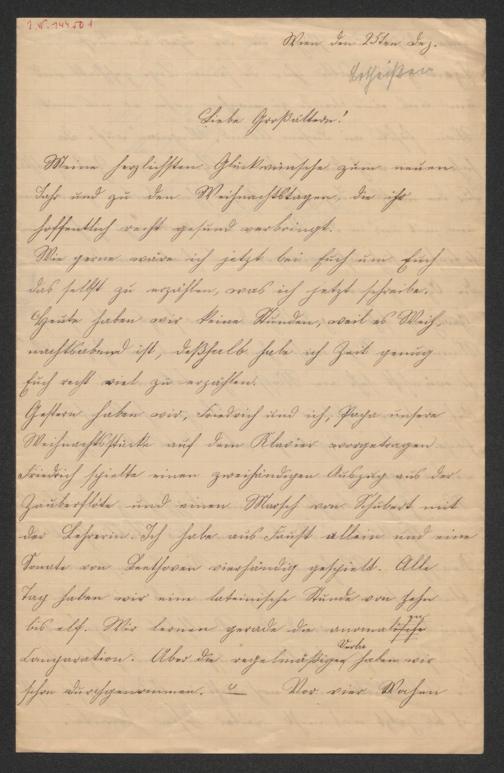 I.N. 144501
Wien den 25ten Dez.
Liebe Großältern!
Meine herzlichsten Glückwünsche zum neuen
Jahr und zu den Weihnachtstagen, die ihr
hoffentlich recht gesund verbringt.
Wie gerne wäre ich jetzt bei Euch um Euch
das selbst zu erzählen, was ich jetzt schreibe.
Heute haben wir keine Stunden, weil es Weih-
nachtsabend ist, deßhalb habe ich Zeit genug
Euch recht viel zu erzählen.
Gestern haben wir, Friedrich und ich, Papa unsere
Weihnachtsstücke auf dem Klavier vorgetragen.
Friedrich spielte einen zweihändigen Auszug aus der
Zauberflöte und einen Marsch von Schubert mit
der Lehrerin. Ich habe aus Faust allein und eine
Sonate von Beethoven vierhändig gespielt. Alle
Tag haben wir eine lateinische Stunde von zehn
bis elf. Wir lernen gerade die
Comparation. Aber die regelmäßigen Verba haben wir
schon durchgenommen. Vor vier Wochen